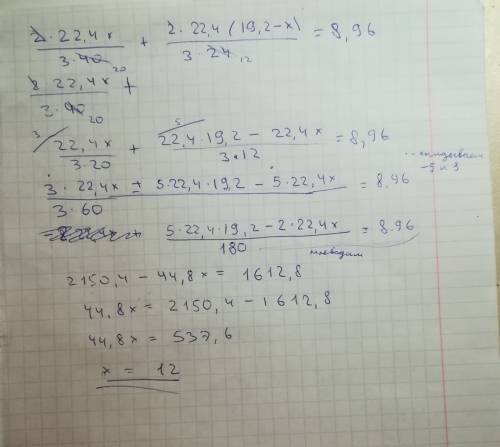 2·22,4x / 3·40 20 + 2·22,4(19,2-x) / 3·24 12 = 8,96
2 22,4x / 3·40 20 +
3/ 22,4x / 3·20 + 5/ 22,4·19,2 - 22,4x / 3·12 = 8,96
3·22,4x + 5·22,4·19,2 - 5·22,4x / 3·60 = 8.96
-5 и 3
5·22,4·19,2 - 2·22,4x / 180 = 8.96
2150,4 - 44,8x = 1612,8
44,8x = 2150,4 - 1612,8
44,8x = 537,6
x = 12